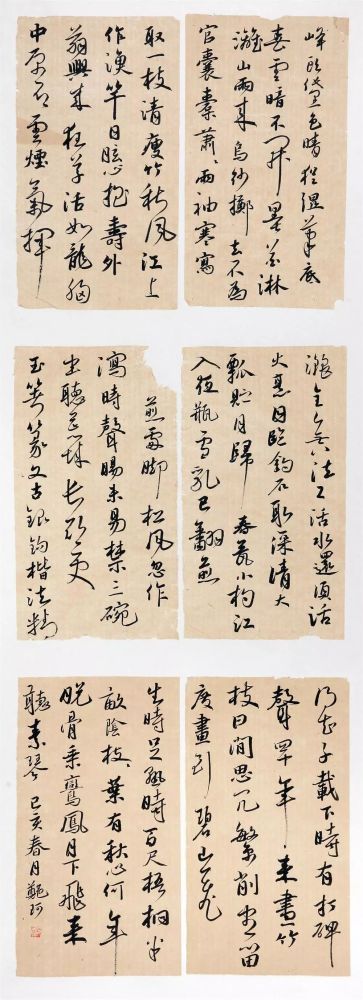 峰頭黛色晴猶溼筆底
春雲暗不開墨花淋
灕山雨來烏紗擲去不為
官囊橐蕭蕭兩袖寒寫
取一枝清瘦竹秋風江上
作漁竿日眩心搖壽外
翁興來狂草活如龍胸
中原有雲煙氣揮
灑全無八法工活水還須活
火烹自臨釣石取深清大
瓢貯月歸春甕小杓江
入夜瓶雪乳已翻煎
煎處腳松風忽作
瀉時聲腸未易禁三碗
坐聽荒城長短更
玉箸篆文古銀鉤楷法精
乃知千載下時有打碑
聲四十年來畫竹
枝日間思冗繁削盡留
畫到
生時是熟時百尺梧桐半
畝陰枝枝葉葉有秋心何年
脫骨乘鸞鳳月下飛來
聽素琴 己亥春月鄭珂